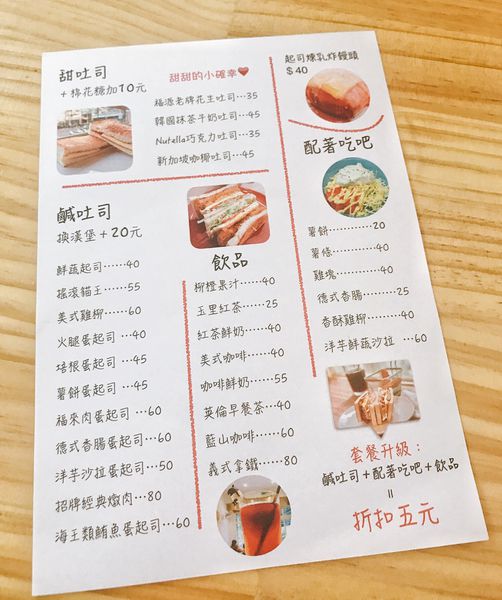 甜吐司
+棉花糖加10元
甜甜的小確幸
福源老牌花生吐司…35
韓國抹茶牛奶吐司…45
Nutella巧克力吐司…35
新加坡咖椰吐司…45
鹹吐司
換漢堡+20元
鮮蔬起司……40
搖滾貓王……55
美式雞柳……60
火腿蛋起司…40
培根蛋起司…45
薯餅蛋起司…45
福來肉蛋起司…60
德式香腸蛋起司…60
洋芋沙拉蛋起司…50
招牌經典燉肉…80
海王類鮪魚蛋起司…60
飲品
柳橙果汁……40
玉里紅茶……25
紅茶鮮奶……40
美式咖啡……40
咖啡鮮奶……55
英倫早餐茶…40
藍山咖啡……60
義式拿鐵……80
起司煉乳炸饅頭
$40
配著吃吧
薯餅…………20
薯條…………40
雞塊…………40
德式香腸……25
香酥雞柳……40
洋芋鮮蔬沙拉…60
套餐升級：
鹹吐司+配著吃吧+飲品
=
折扣五元